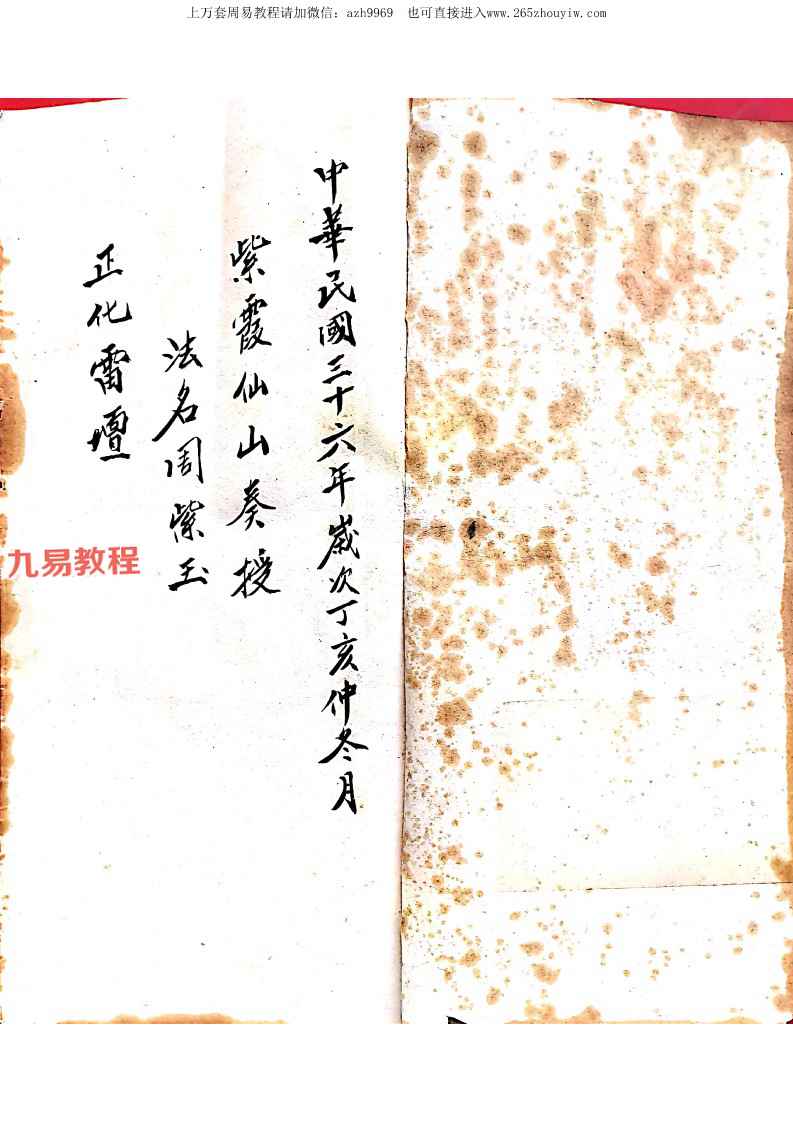 上万套周易教程请加微信：azh9969 也可直接进入www.265zhouyiw.com
中華民國三十六年歲次丁亥仲冬月
紫霞仙山奏授
法名周紫玉
正化雷壇
九易教程